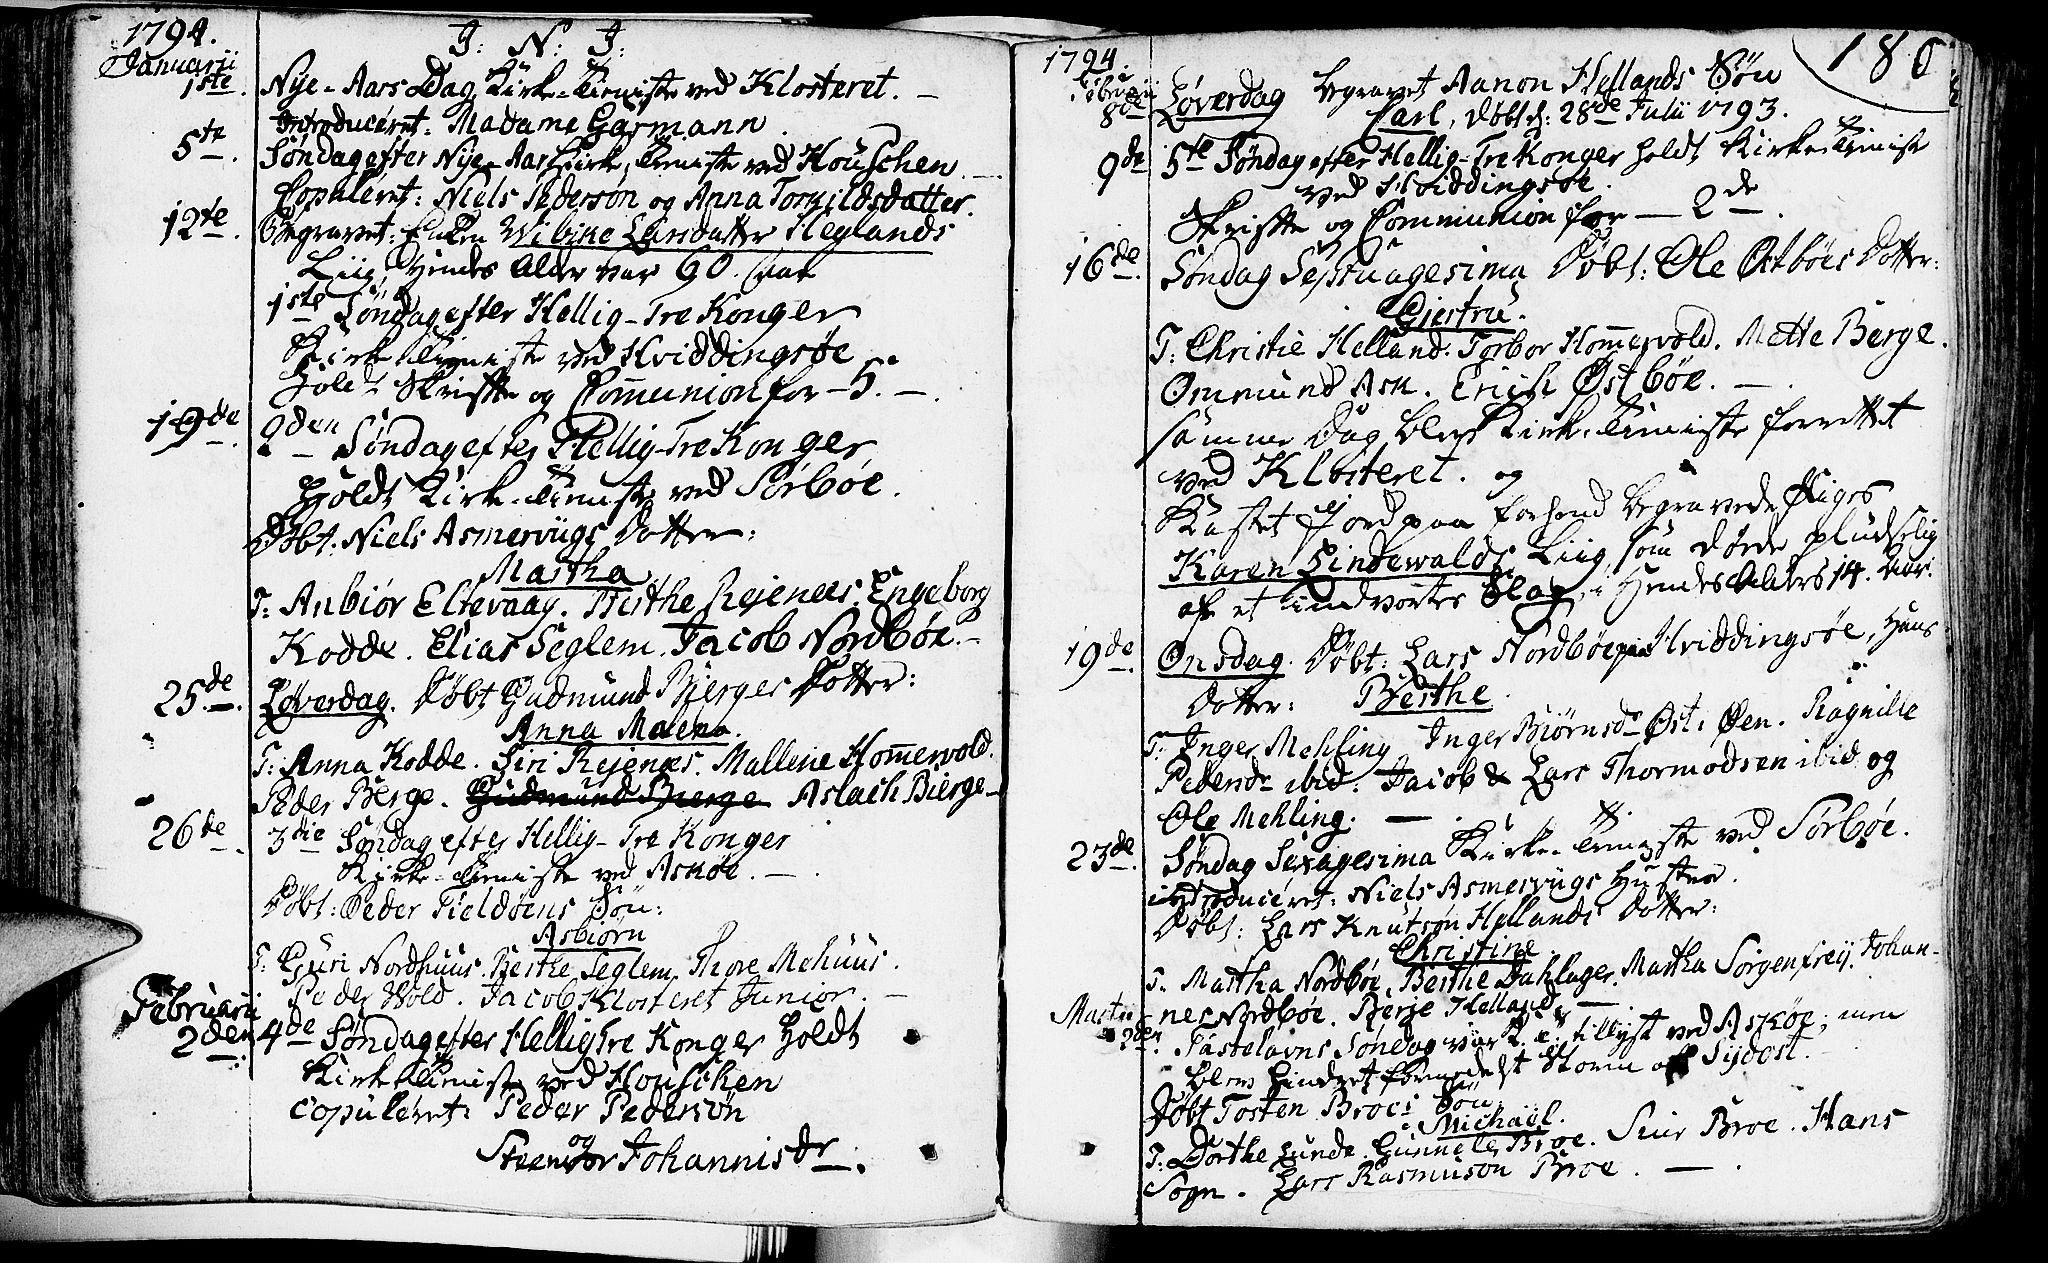 1794.
J: N: J:
Januarii
1ste. Nye-Aars Dag Kirke-Tieniste ved Klosteret. –
Introduceret: Madame Garmann.
5te. Søndag efter Nye-Aar Kirke-Tieniste ved Houschen. –
Copuleret: Niels Pedersøn og Anna Torkildsdatter.
12te. Begravet: Enken Wibike Larsdatter Heglands
Liig, Hendes Alder var 60. Aar
1ste Søndag efter Hellig-Tre Konger
Kirke-Tieniste ved Hviddingsøe
Holdt Skrifte og Communion for – 5. –.
19de. 2den Søndag efter Hellig-Tre Konger
Holdt Kirke-Tieniste ved Sørbøe.
Døbt: Niels Asmervigs Datter:
Martha
T: Anbiør Eltevaag. Berthe Rejenees. Engeborg
Kodde. Elias Seglem. Jacob Nordbøe. –
25.de. Løverdag. Døbt Gudmund Bjerges Datter:
Anna Malena.
T: Anna Kodde. Siri Rejenæs. Mallene Hommervold.
Peder Berge. Gudmund Bierge Aslach Bierge –
26de. 3die Søndag efter Hellig-Tre Konger
Kirke-Tieniste ved Askøe. –.
Døbt: Peder Fieldøens Søn:
Asbiørn
T: Guri Nordhuus. Berthe Seglem. Thore Mehuus.
Peder Wold. Jacob Klosteret Junior. –
Februarii
2den. 4de Søndag efter Hellig Tre Konger Holdt
Kirke-Tieniste ved Houschen
Copuleret: Peder Pedersøn
og
Steenvor Johannisdr.
1794.
180
Februarii
8de Løverdag begravet Aanon Hellands Søn
Carl, døbt d: 28de Julii 1793.
9de 5te Søndag efter Hellig-Tre Konger holdt Kirke-Tieniste
ved Hviddingsøe.
Skrifte og Communion for – 2de.
16de. Søndag Septuagesima Døbt: Ole Østbøes Datter:
Giertru.
T: Christie Helland. Torbor Hommervold. Mette Berge.
Ommund Ask. Erich Østbøe. –.
samme Dag blev Kirke-Tieniste forrettet
ved Klosteret. og
Kastet Jord paa forhend begravede Piges
Karen Lindewalds Liig, som døde pludselig
af et indvortes Slag, i Hendes Alders 14. Aar.
19de. Onsdag. Døbt: Lars Nordbøe paa Hviddingsøe, Hans
Datter: Berthe.
T: Inger Mehling Inger Biørnsdr Øst. Øen. Ragnille
Pedersdr ibid. Jacob & Lars Thormodsen ibid og
Ole Mehling. –.
23de. Søndag Sexagesima Kirke-Tieniste ved Sørbøe.
introduceret: Niels Asmervigs Hustrue.
Døbt: Lars Knutsøn Hellands Datter:
Christine
T: Martha Nordbøe, Berthe Dahlager. Martha Sorgenfreij. Johan-
nes Nordbøe. Berje Helland. –.
Martii
2den. Fastelavns Søndag var K. T. tillyst ved Askøe; men
blev hindret formedelst Storm af Sydost. –
Døbt Tosten Broes Søn:
Michael.
T: Dorthe Lunde. Gunnele Broe. Siur Broe. Hans
Sogn. Lars Rasmusøn Broe. –.